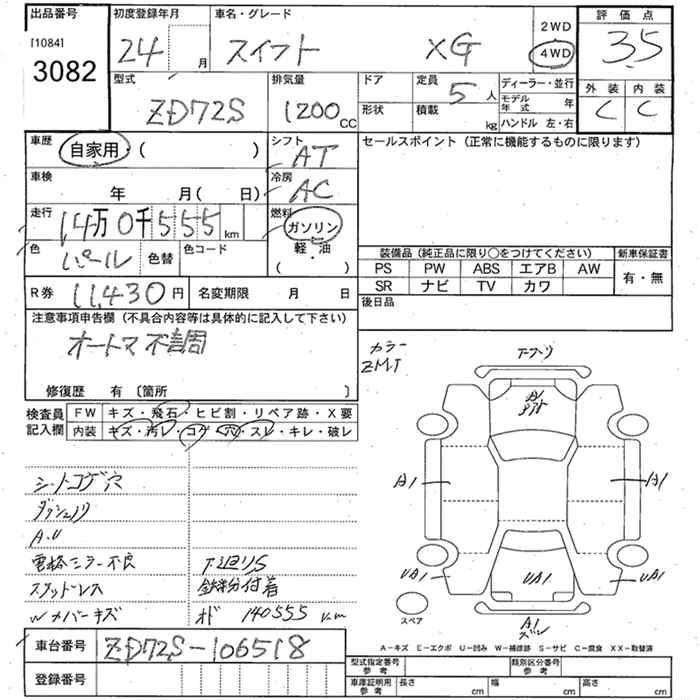 出品番号
[1084]
3082
初度登録年月
24 月
車名・グレード
スイフト XG
2WD
4WD
評価点
3.5
外装 内装
C C
型式
ZD72S
排気量
1200 CC
ドア
形状
定員 5 人
積載 kg
ディーラー・並行
モデル年式 年
ハンドル 左・右
車歴
自家用 ( )
シフト
AT
セールスポイント (正常に機能するものに限ります)
車検
年 月 ( 日)
冷房
AC
走行
14万0千555 km
燃料
ガソリン
軽・油
( )
色
パール
色替
色コード
装備品 (純正品に限り○をつけてください)
新車保証書
PS PW ABS エアB AW
SR ナビ TV カワ
有・無
R券 11,430円
名変期限 月 日
後日品
注意事項申告欄 (不具合内容等は具体的に記入して下さい)
オートマ不調
修復歴 有 〔箇所 〕
カラー
ZMT
検査員
記入欄
FW キズ・飛石・ヒビ割・リペア跡・X要
内装 キズ・汚レ・コゲ・穴・スレ・キレ・破レ
シートコゲ穴
A1
A1
A1
電格ミラー不良
下廻りS
スタッドレス
鉄粉付着
Wカバーキズ
オド 140555
UA1
UA1
UA1
A1
スペア
A-キズ E-エクボ U-凹み W-補修跡 S-サビ C-腐食 XX-取替済
車台番号 ZD72S-106518
登録番号
型式指定番号
参考
類別区分番号
参考
車庫証明用
参考
長さ cm
幅 cm
高さ cm